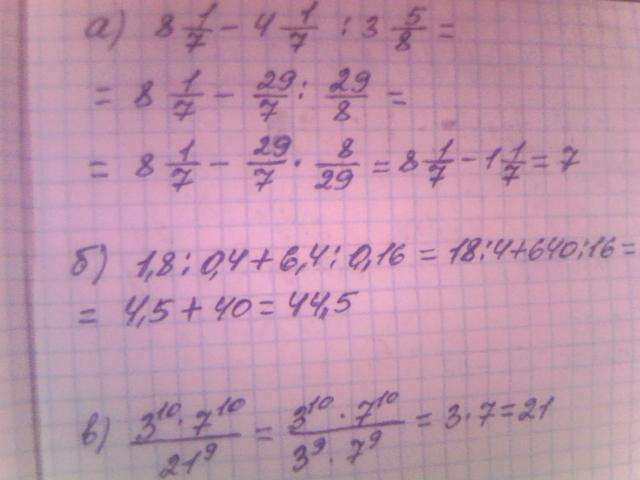 а) 8 1/7 - 4 1/7 : 3 5/8 =
= 8 1/7 - 29/7 : 29/8 =
= 8 1/7 - 29/7 · 8/29 = 8 1/7 - 1 1/7 = 7
б) 1,8 : 0,4 + 6,4 : 0,16 = 18 : 4 + 640 : 16 =
= 4,5 + 40 = 44,5
в) 3¹⁰ · 7¹⁰ / 21⁹ = 3¹⁰ · 7¹⁰ / 3⁹ · 7⁹ = 3 · 7 = 21